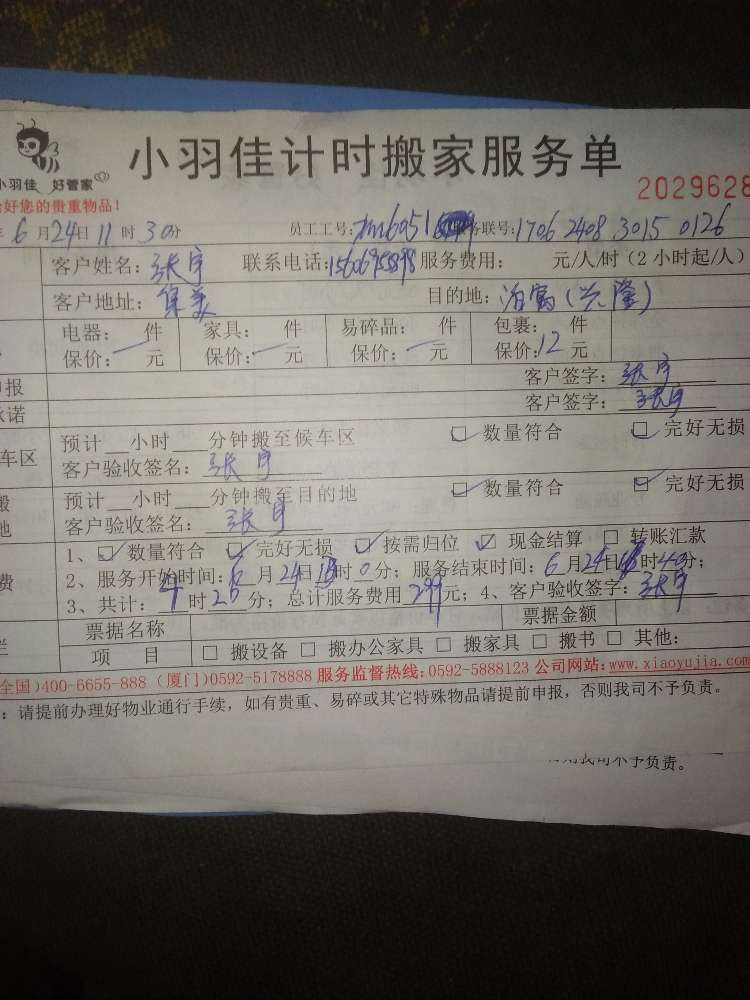 小羽佳计时搬家服务单
小羽佳 好管家
2029628
好您的贵重物品！
6月24日11时30分 员工工号： 务联号：1706 2408 3015 0126
客户姓名：张宇 联系电话： 服务费用： 元/人/时（2小时起/人）
客户地址：集美 目的地：泊寓（兴隆）
电器： 件 家具： 件 易碎品： 件 包裹： 件
保价： 元 保价： 元 保价： 元 保价：12元
申报 客户签字：张宇
承诺 客户签字：张宇
车区 预计 小时 分钟搬至候车区 ☑ 数量符合 ☑ 完好无损
客户验收签名：张宇
预计 小时 分钟搬至目的地 ☑ 数量符合 ☑ 完好无损
客户验收签名：张宇
1、☑ 数量符合 ☑ 完好无损 ☑ 按需归位 ☑ 现金结算 □ 转账汇款
费 2、服务开始时间：6月24日 时0分；服务结束时间：6月24日 时40分；
3、共计： 时 分；总计服务费用299元；4、客户验收签字：张宇
票据名称 票据金额
栏 项 目 □ 搬设备 □ 搬办公家具 □ 搬家具 □ 搬书 □ 其他：
全国)400-6655-888 (厦门)0592-5178888 服务监督热线：0592-5888123 公司网站：www.xiaoyujia.com
：请提前办理好物业通行手续，如有贵重、易碎或其它特殊物品请提前申报，否则我司不予负责。
我司不予负责。